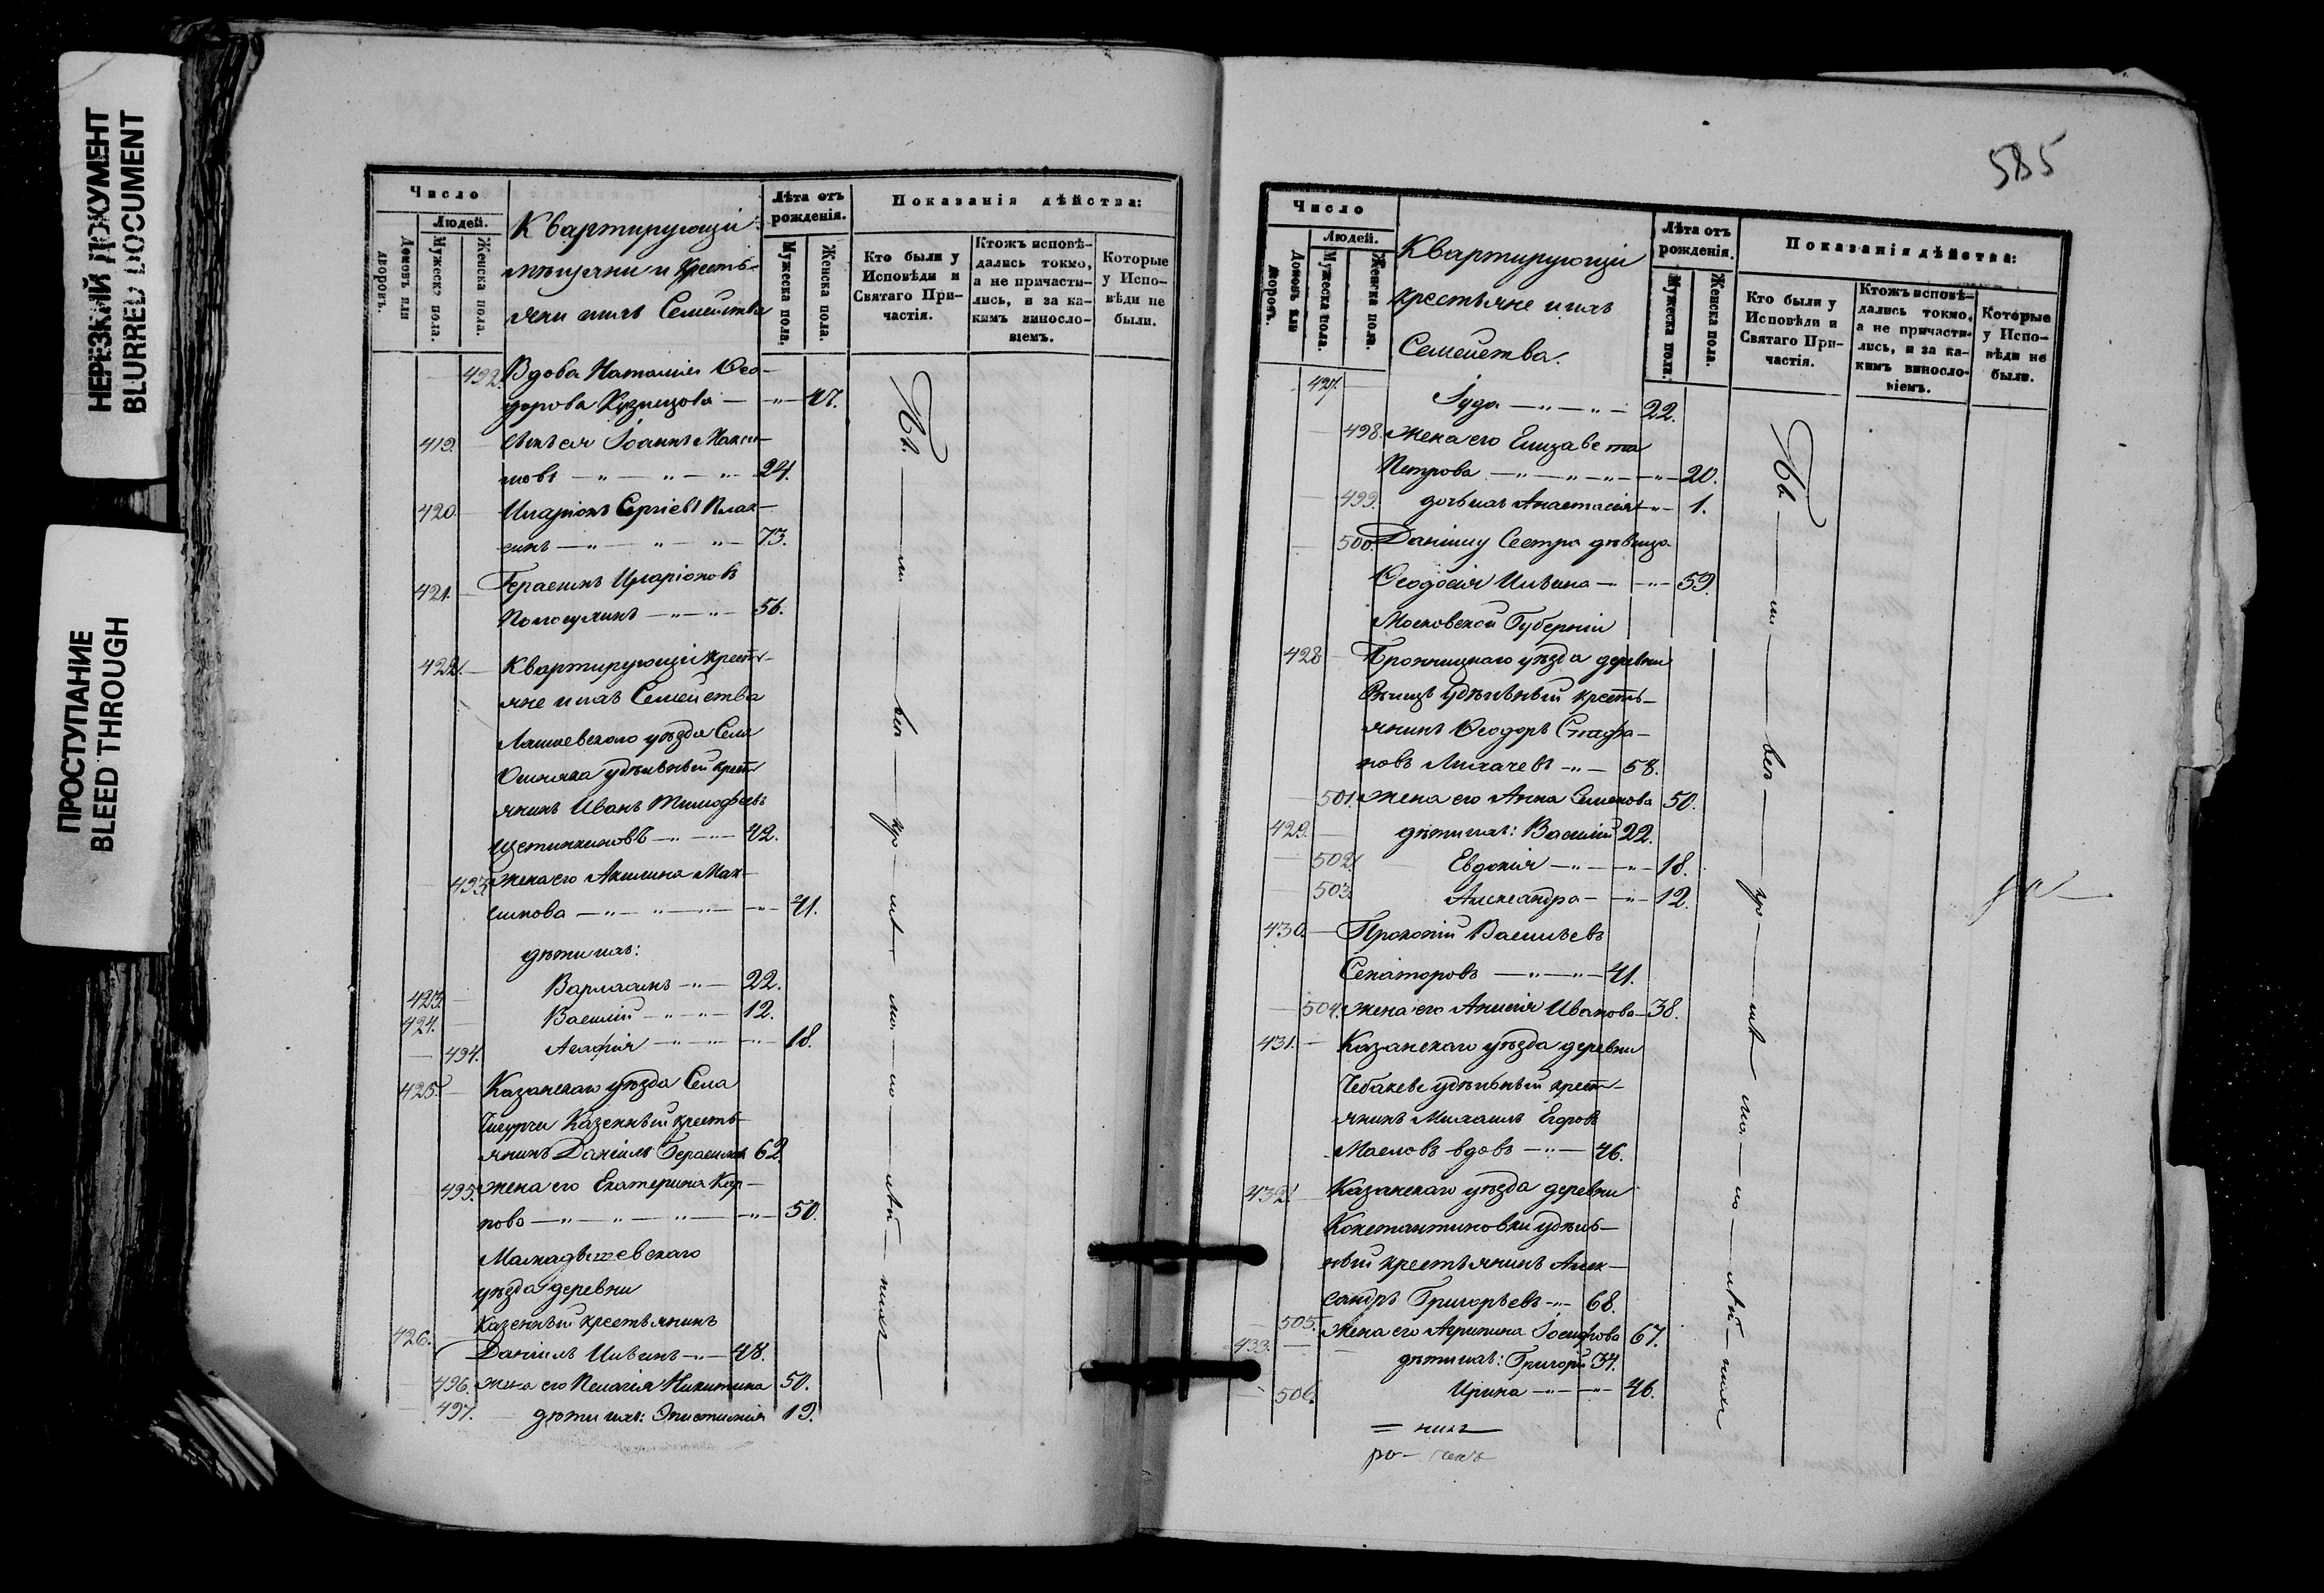 НЕРЕЗКИЙ ДОКУМЕНТ
BLURRED DOCUMENT
ПРОСТУПАНИЕ
BLEED THROUGH
Число
Людей.
Домовъ или дворовъ.
Мужеска пола.
Женска пола.
Квартирующіи
мѣщани и кресть-
яни ихъ Семейства
Лѣта отъ рожденія.
Мужеска пола.
Женска пола.
Показанія дѣйства:
Кто были у Исповѣди и Святаго При-частія.
Ктожъ исповѣ-дались токмо, а не причасти-лись, и за ка-кимъ винносло-віемъ.
Которые у Испо-вѣди не были.
492. Вдова Наталія Ѳео-
дорова Кузнецова — 47.
419. сынъ ея Іоаннъ Макси-
мовъ 24.
420. Иларіонъ Сергіевъ Плак-
синъ 73.
421. Герасимъ Иларіоновъ
56.
422. Квартирующіи кресть-
яне и ихъ Семейства
Лаишевскаго уѣзда Села
удѣльный крест-
янинъ Иванъ Тимофѣевъ
Щетинкиновъ 42.
493. жена его Акилина Мак-
симова 41.
дѣти ихъ:
423. Варлаамъ 22.
424. Василій 12.
494. Агафія 18.
425. Казанскаго уѣзда Села
Казенный кресть-
янинъ Даніилъ Герасимовъ 62.
495. жена его Екатерина Кар-
пова 50.
Мамадышевскаго
уѣзда деревни
казенный крестьянинъ
426. Даніилъ Ильинъ 48.
496. жена его Пелагія Никитина 50.
497. дѣти ихъ: Епистимія 19.
585
Число
Людей.
Домовъ или дворовъ.
Мужеска пола.
Женска пола.
Квартирующіи
крестьяне и ихъ
Семейства.
Лѣта отъ рожденія.
Мужеска пола.
Женска пола.
Показанія дѣйства:
Кто были у Исповѣди и Святаго При-частія.
Ктожъ исповѣ-дались токмо, а не причасти-лись, и за ка-кимъ винносло-віемъ.
Которые у Испо-вѣди не были.
427. Іуда 22.
498. жена его Елизавета
Петрова 20.
499. дочь ихъ Анастасія 1.
500. Даніилу Сестра дѣвица
Ѳеодосія Ильина 59.
Московской Губерніи
428. Бронницкаго уѣзда деревни
удѣльный кресть-
янинъ Ѳеодоръ Стефа-
новъ Лихачевъ 58.
501. жена его Анна Семенова 50.
429. дѣти ихъ: Василій 22.
502. Евдокія 18.
503. Александра 12.
430. Прокопій Васильевъ
Сенаторовъ 41.
504. жена его Анисія Иванова 38.
431. Казанскаго уѣзда деревни
Чебаксы удѣльный крест-
янинъ Михаилъ Егоровъ
Масловъ вдовъ 46.
432. Казанскаго уѣзда деревни
Константиновки удѣль-
ный крестьянинъ Алек-
сандръ Григорьевъ 68.
505. жена его Агрипина Іосифова 67.
433. дѣти ихъ: Григорій 34.
506. Ирина 46.